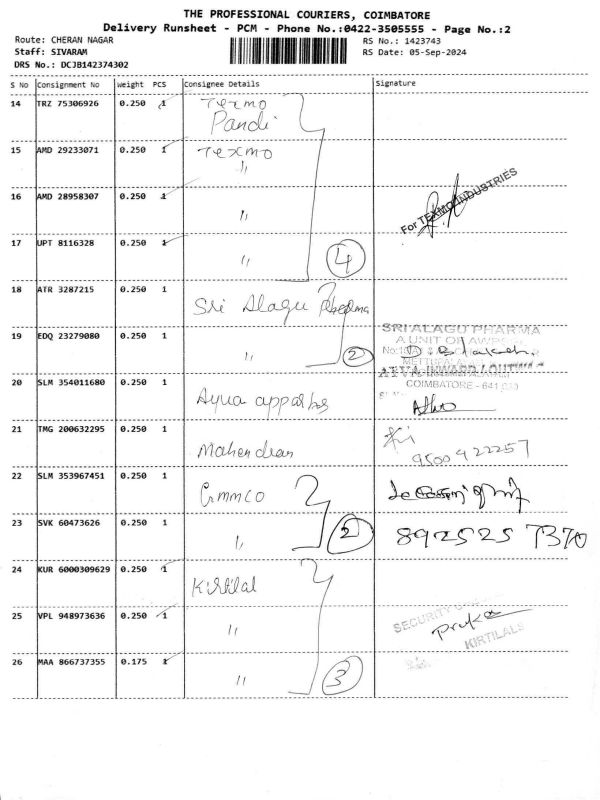 THE PROFESSIONAL COURIERS, COIMBATORE
Delivery Runsheet - PCM - Phone No.:0422-3505555 - Page No.:2
Route: CHERAN NAGAR
RS No.: 1423743
Staff: SIVARAM
RS Date: 05-Sep-2024
DRS No.: DCJB142374302
S No Consignment No Weight PCS Consignee Details Signature
14 TRZ 75306926 0.250 1 Texmo
Pandi
15 AMD 29233071 0.250 1 Texmo
16 AMD 28958307 0.250 1 "
For TEXMO INDUSTRIES
17 UPT 8116328 0.250 1 " 4
18 ATR 3287215 0.250 1 Sri Alagu
19 EDQ 23279080 0.250 1 " 2
SRI ALAGU PHARMA
A UNIT OF
COIMBATORE - 641
20 SLM 354011680 0.250 1
21 TMG 200632295 0.250 1 Mahendran
9500422257
22 SLM 353967451 0.250 1
23 SVK 60473626 0.250 1 " 2 892525 7370
24 KUR 6000309629 0.250 1 Kirtilal
25 VPL 948973636 0.250 1 "
SECURITY
KIRTILALS
26 MAA 866737355 0.175 1 " 3